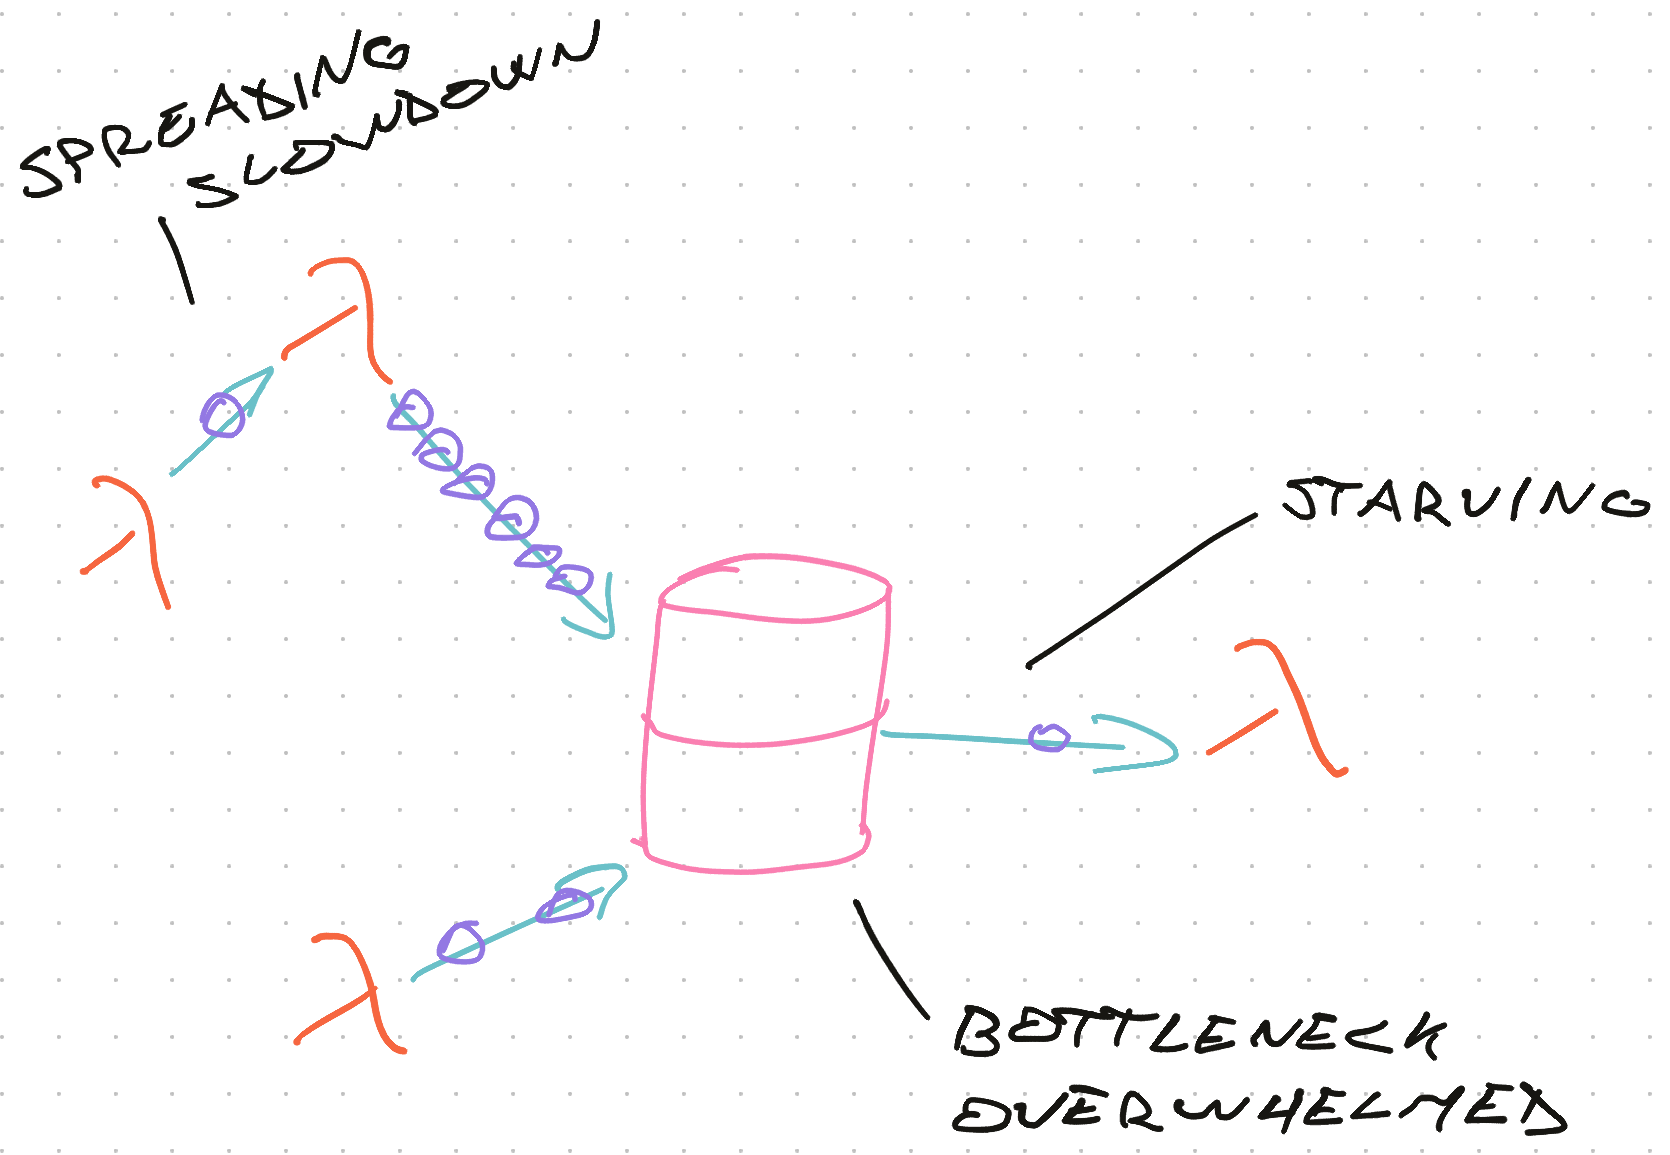 SPREADING
SLOWDOWN
λ
λ
STARVING
λ
λ
BOTTLENECK
OVERWHELMED